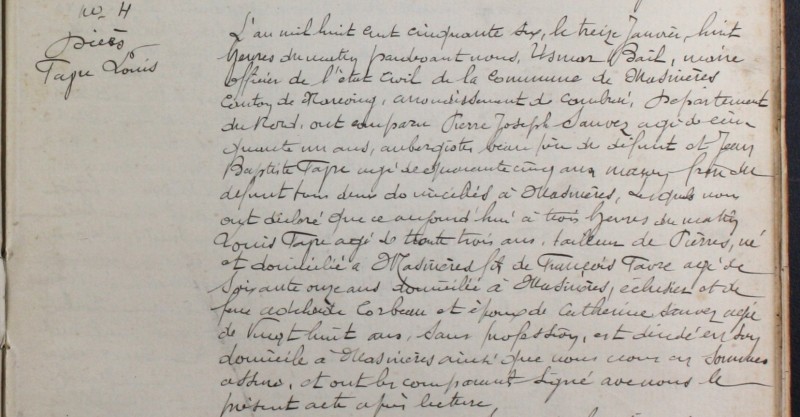 No 4
Décès
Tayre Louis
L'an mil huit cent cinquante six, le treize Janvier, huit
heures du matin pardevant nous, Usmar Bail, maire
officier de l'état civil de la Commune de Masnières
Canton de Marcoing, arrondissement de Cambrai, Département
du Nord, ont comparu Pierre Joseph Sauvez agé de cin
quante un ans, aubergiste beau père du défunt et Jean
Baptiste Tayre agé de quarante cinq ans maçon, frère du
défunt tous deux domiciliés à Masnières, lesquels nous
ont déclaré que ce aujourd'hui à trois heures du matin
Louis Tayre agé de trente trois ans, tailleur de Pierres, né
et domicilié à Masnières fils de François Tayre agé de
soixante onze ans domicilié à Masnières, éclusier et de
feue adelaïde Corbeau et époux de Catherine Sauvez agée
de vingt huit ans, sans profession, est décédé en son
domicile à Masnières ainsi que nous nous en sommes
assuré, et ont les comparant signé avec nous le
présent acte après lecture,